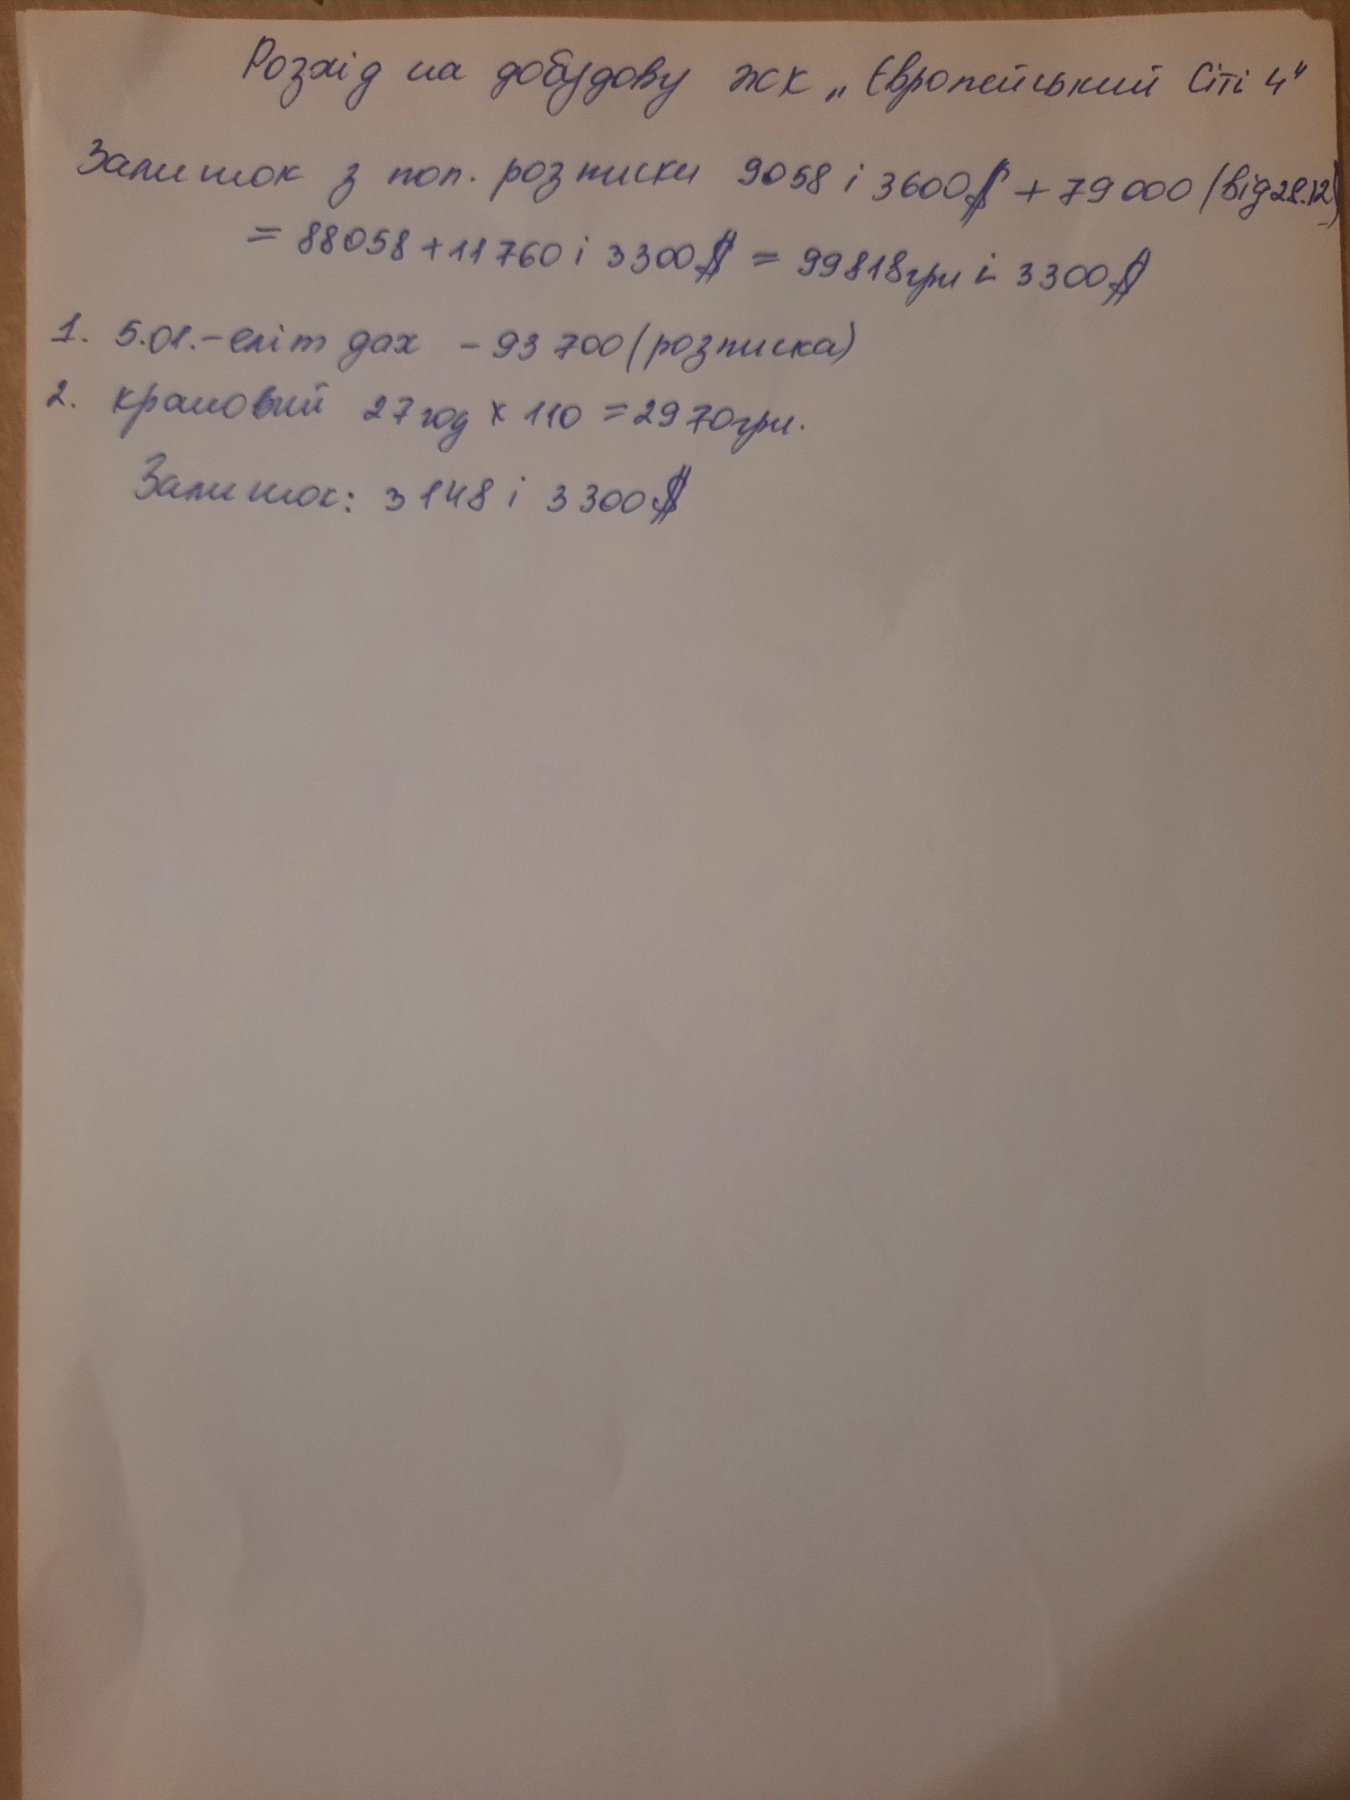 Розхід на добудову ЖК „Європейський Сіті 4"
Залишок з поп. розписки 9058 і 3600$ + 79000 (від 28.12)
= 88058 + 11760 і 3300$ = 99818грн і 3300$
1. 5.01. - еліт дах - 93700 (розписка)
2. крановий 27 год х 110 = 2970грн.
Залишок: 3148 і 3300$